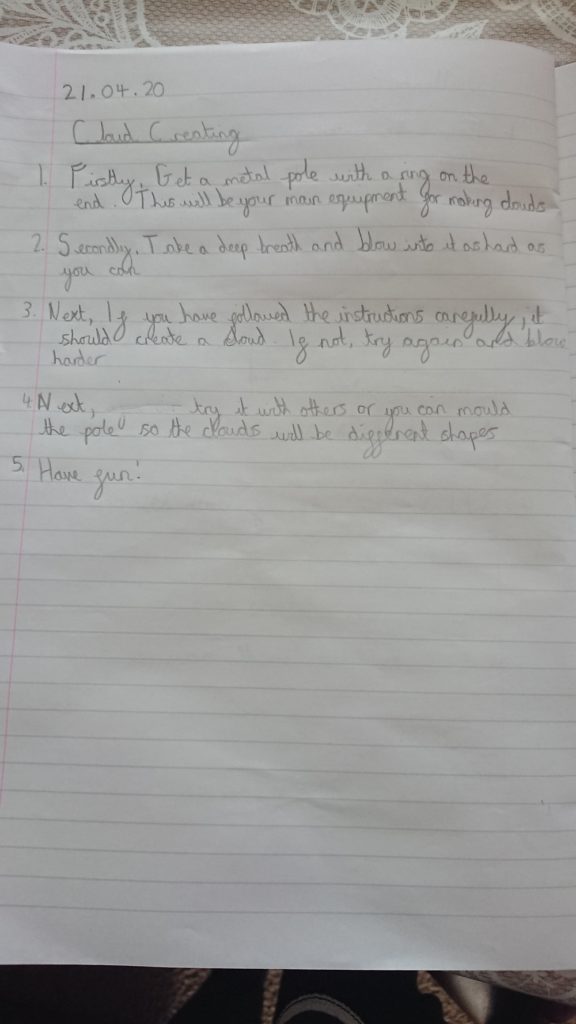 21.04.20
Cloud Creating
1. Firstly, Get a metal pole with a ring on the
end. This will be your main equipment for making clouds
2. Secondly, Take a deep breath and blow into it as hard as
you can
3. Next, If you have followed the instructions carefully, it
should create a cloud. If not, try again and blow
harder
4. Next, try it with others or you can mould
the pole so the clouds will be different shapes
5. Have fun!